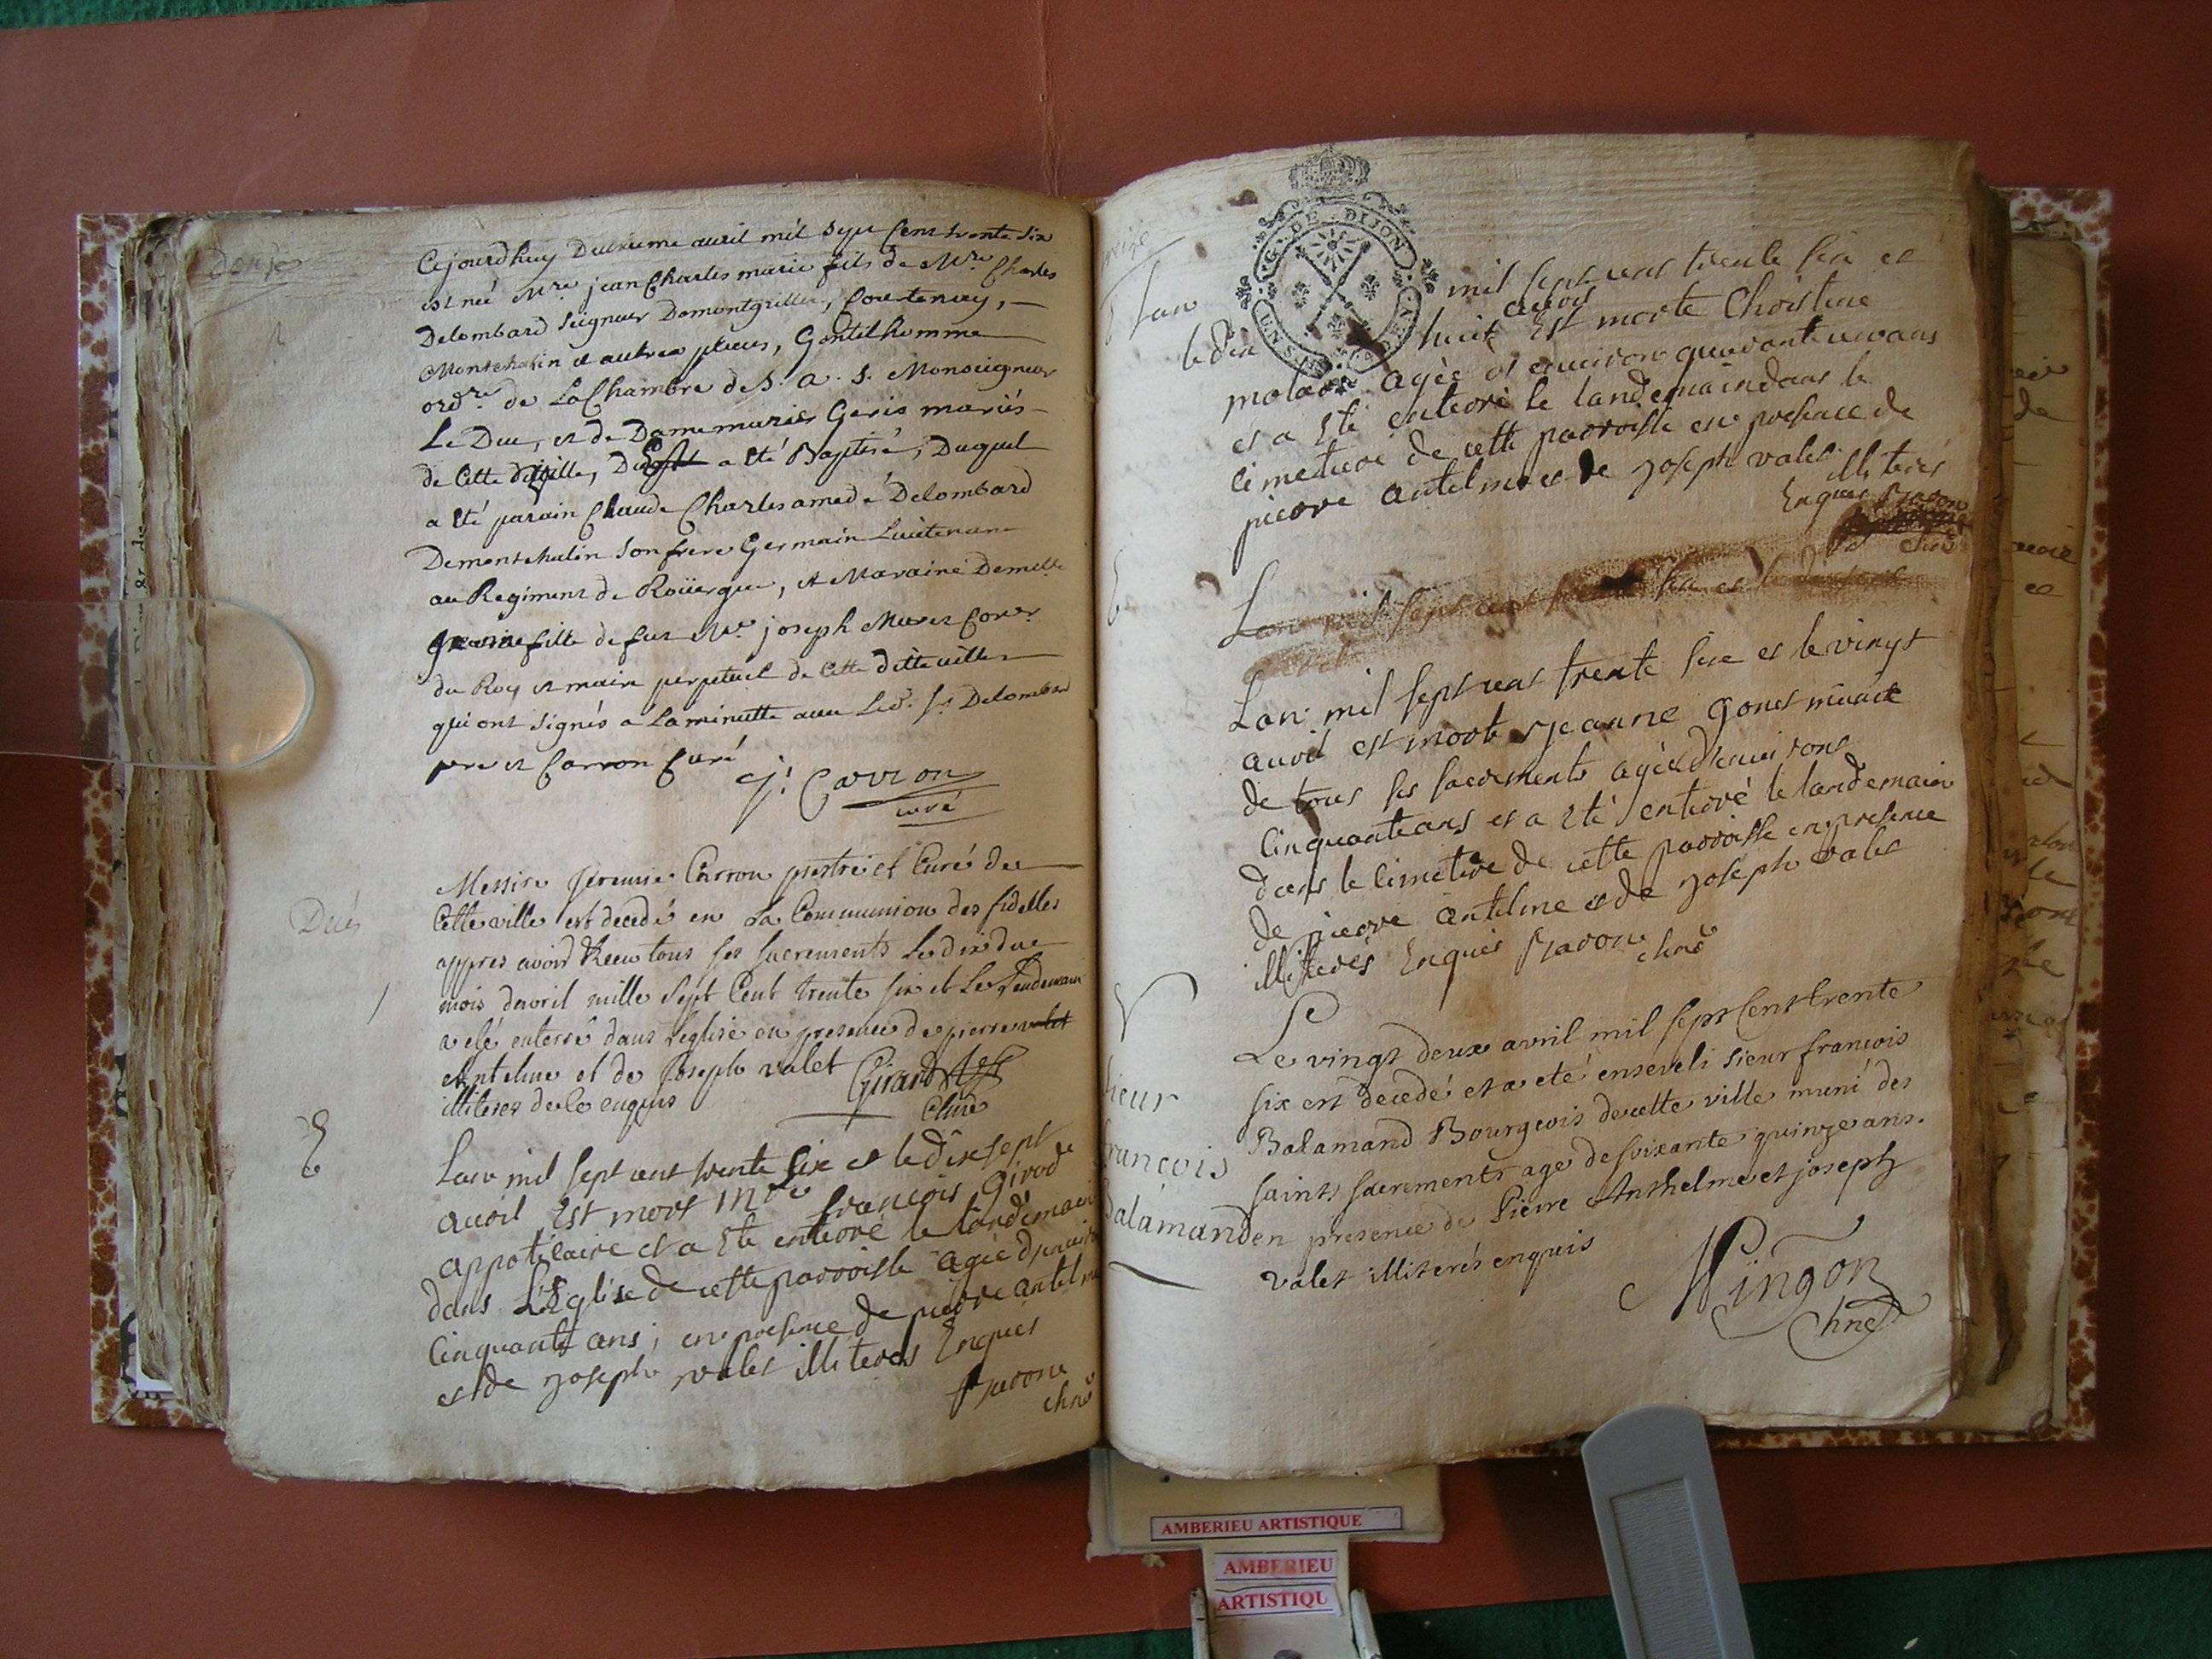 douze
Cejourdhuy Deuxieme avril mil sept Cent trente Six
est né Mre jean Charles marie fils de Mre Charles
Delombard Seigneur Demontgrillier, Courtenay,
Montchalin et autres places, Gentilhomme
ordre de La Chambre de S. A. S. Monseigneur
Le Duc, et de Dame Geris mariés
de Cette ville, a été Baptisé, Duquel
a été parain Claude Charles amedé Delombard
Demontchalin Son frere Germain Lieutenant
au Regiment de Roüergue, et Maraine Demelle
fille de feu Mre joseph Muret Coner
du Roy et maire perpetuel de Cette ditte ville
qui ont signés a La minutte avec Led. Sr Delombard
pere et Carron Curé
J. Carron
curé
Messire Jeremie Carron prestre et Curé de
Cette ville est decedé en La Communion des fidelles
appres avoir Reeu tous ses sacrements Le dix du
mois davril mille Sept Cent trente six et Le Lendemain
a eté enterré dans Leglise en presence de pierre valet
Antelme et de Joseph valet
illiteres de ce enquis
Girard
Chne
E
Lan mil sept cent trente Six et le dix sept
avril Est mort Mre françois Girod
appoticaire et a Eté enterré le landemain
dans L'Eglise de cette parroisse agée denviron
Cinquante ans, en presence de pierre antelme
et de joseph valet illiterés Enquis
chne
G. DE DIJON
Lan mil sept cent trente six et
le dix huit avril Est morte Christine
molard agée d environ quarante un ans
et a Eté enterré le landemain dans le
cimetiere de cette parroisse en presence de
pierre antelme et de joseph valet illiterés
Enquis
chne
Lan mil sept cent trente six et le dix huit
Lan mil sept cent trente six et le vingt
avril est morte jeanne Gonet munie
de tous ses sacrements agée d'environ
Cinquante ans et a Eté enterré le landemain
dans le cimetiere de cette parroisse en presence
de pierre antelme et de joseph valet
illiterés Enquis
chne
Sieur
françois
Balamand
Le vingt deux avril mil sept Cent trente
six est decedé et a eté enseveli sieur françois
Balamand Bourgeois de cette ville muni des
saints sacrements age de soixante quinze ans.
en presence de Pierre Anthelme et joseph
valet illiterés enquis
Mingon
Chne
AMBERIEU ARTISTIQUE
AMBERIEU
ARTISTIQU